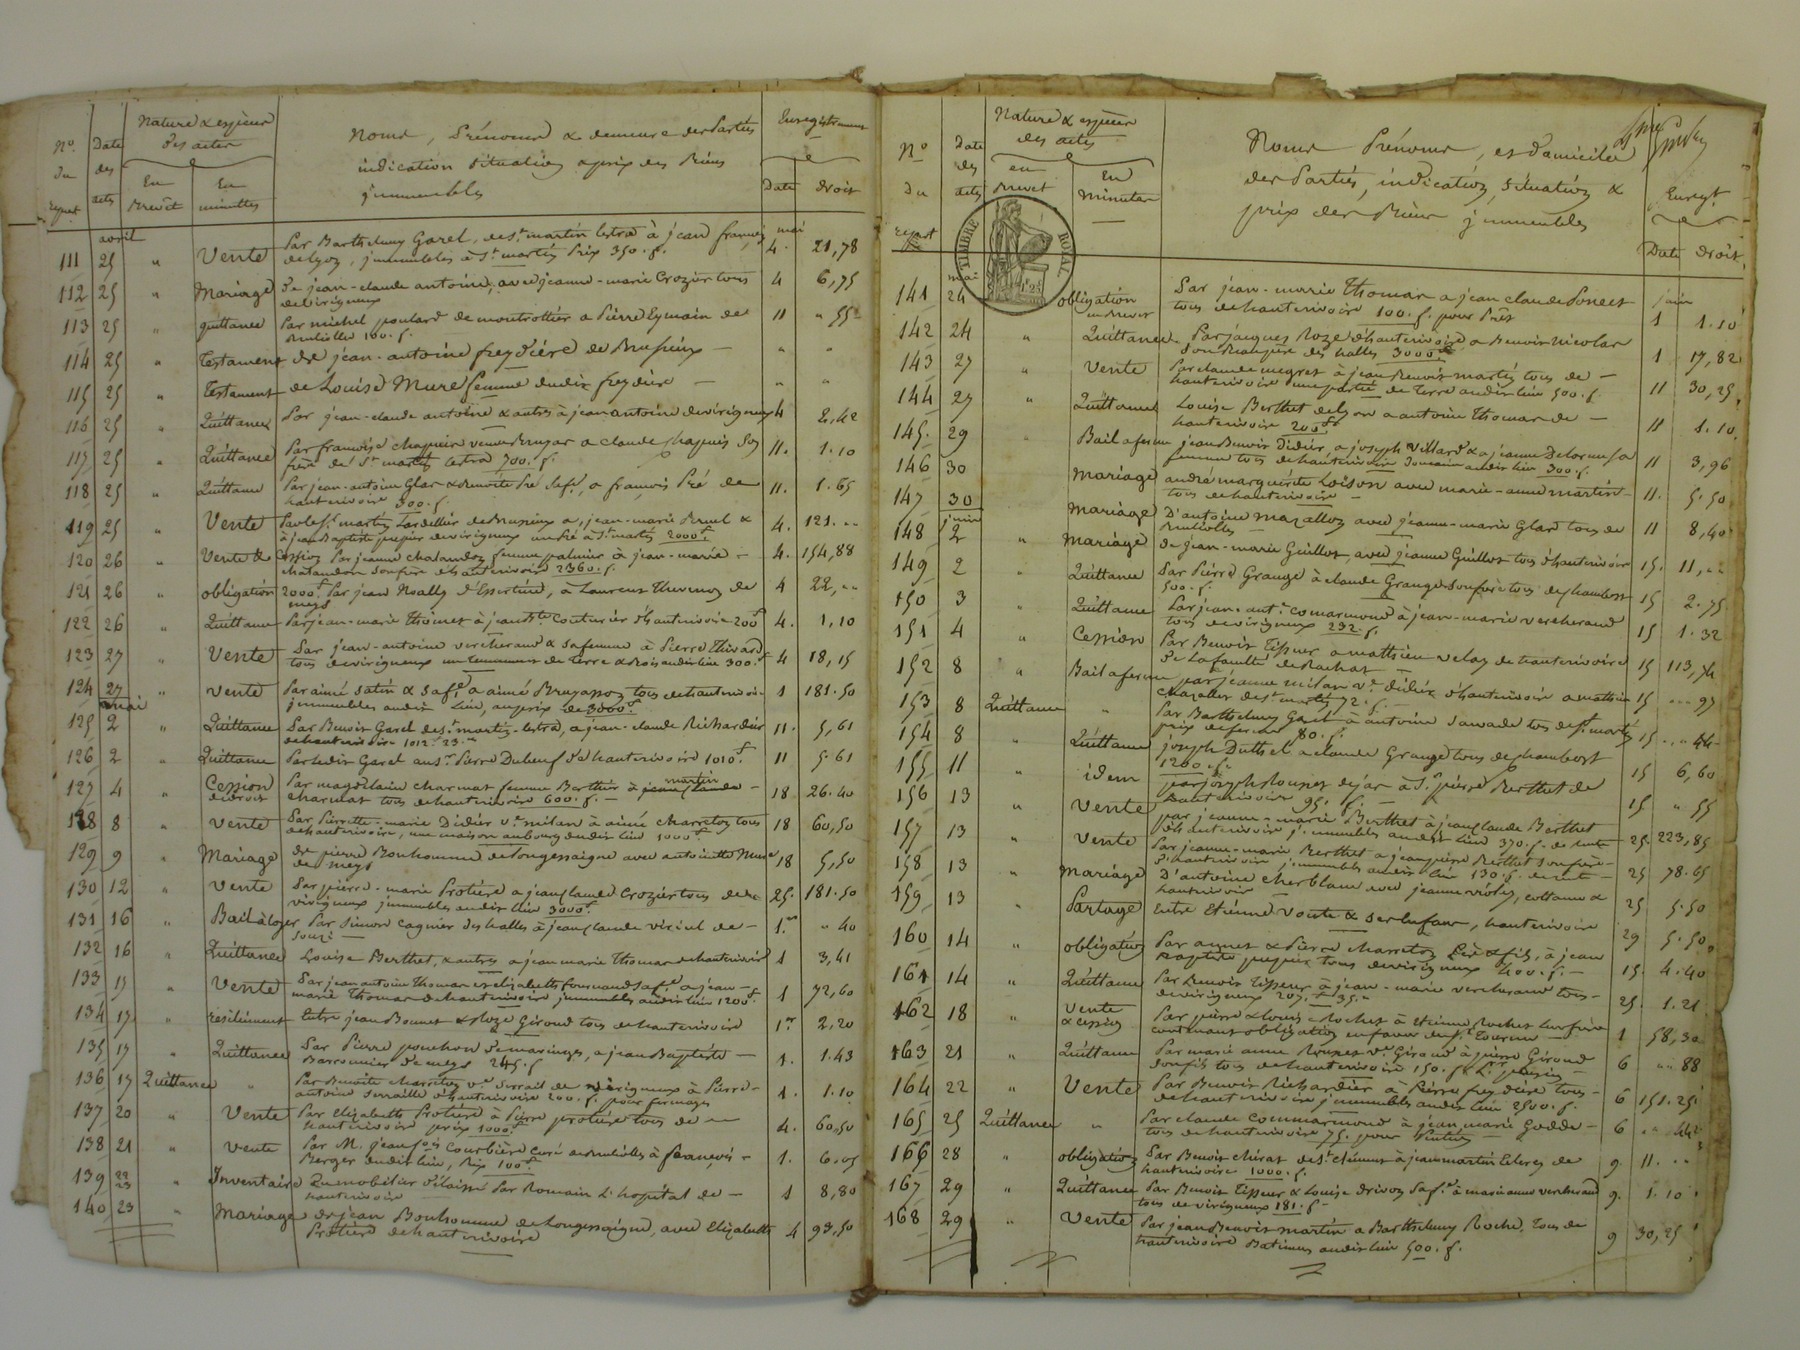 No. du Repert.
Date des actes
Nature & espèces des actes
En Brevêt
En minuttes
Noms, Prénoms & demeure des Parties
indication situation & prix des Biens
immeubles
Enregistrement
Date
droit
avril
mai
111 25 " Vente Par Barthelemy Garel, de st. martin lestra à jean françois 4. 21,78
de lyon, immeubles à St. martin Prix 350. f.
112 25 " Mariage De jean-claude antoine, avec jeanne-marie Crozier tous 4 6,75
de virigneux
113 25 " quittance Par michel poulard de montrottier a Pierre Eymain de 11 " 55
Brulliolle 100. f.
114 25 " Testament de jean-antoine freydière de Brussieux — " "
115 25 " Testament de Louise Mure femme dudit freydière — " "
116 25 " Quittance Par jean-claude antoine & autres à jean antoine de virigneux 4 2,42
117 25 " Quittance Par françoise chapuis veuve Bruyas a claude chapuis son 11. 1.10
frère de St. martin lestra 700. f.
118 25 " Quittance Par jean-antoine Glas & Benoite Pré sa fe., a françois Pré de 11. 1.65
hauterivoire 300. f.
119 25 " Vente Par le St. martin Lardellier de Brussieux a jean-marie Brunel & 4. 121. "
à jean Baptiste pupier de virigneux un Pré à St. martin 2000 f.
120 26 " Vente & Cession Par jeanne chatandon femme palmier à jean-marie 4. 154,88
chatandon son frère d'hauterivoire 2360. f.
121 26 " obligation 2000 f. Par jean Noally d'Essertine, à Laurent Thevenon de 4 22, "
meys
122 26 " Quittance Par jean-marie Thomet à jean Bte. Couturier d'hauterivoire 200 f 4. 1,10
123 27 " Vente Par jean-antoine vercherand & sa femme à Pierre Thivard 4 18,15
tous de virigneux un tennement de Terre & Bois audit lieu 300. f
124 27 " vente Par aimé satin & sa fe. a aimé Bruyasson tous de hauterivoire 1 181.50
immeubles audit lieu, au prix de 3000 f.
mai
125 2 " Quittance Par Benoit Garel de st. martin-lestra, a jean-claude Richardier 11. 5,61
de hauterivoire 1012 f. 23.
126 2 " Quittance Par ledit Garel au sr. Pierre Dubeuf d'hauterivoire 1010 f. 11 5.61
127 4 " Cession de droit Par magdelaine charmat femme Berthier à jean claude martin 18 26.40
charmat tous de hauterivoire 600. f. —
128 8 " Vente Par Pierrette-marie Didier ve. milan à aimé charreton tous 18 60,50
de hauterivoire, une maison au bourg dudit lieu 1000 f.
129 9 " Mariage de pierre Bonhomme de Longessaigne avec antoinette Mure 18 5,50
de meys
130 12 " Vente Par pierre-marie Protière a jean claude Crozier tous de 25. 181.50
virigneux immeubles audit lieu 3000 f.
131 16 " Bail à loyer Par Simon Cagnier des halles à jean claude viricel de — 1.er " 40
souzi
132 16 " Quittance Louise Berthet, & autres a jean marie Thomas de hauterivoire 1 3,41
133 17 " Vente Par jean antoine Thomas et elizabeth fournand sa fe. a jean- 1 72,60
marie Thomas de hauterivoire immeubles audit lieu 1200 f.
134 17 " résiliement Entre jean Bonnet & Roze Giroud tous de hauterivoire 1er 2,20
135 17 " Quittance Par Pierre ponchon de maringes, a jean Baptiste — 1. 1.43
Barconnier de meys 245. f.
136 17 Quittance " Par Benoite charreton ve. Serraille de virigneux à Pierre- 1. 1.10
antoine Serraille d'hauterivoire 200. f. pour fermages
137 20 " Vente Par Elizabeth Protière à Pierre protière tous de 4. 60,50
hauterivoire prix 1000 f.
138 21 " Vente Par M. jean fois Courbière curé de Brullioles à françois — 1. 6.05
Berger dudit lieu, Prix 100 f.
139 22 23 " Inventaire Du mobilier délaissé Par Romain L'hopital de — 1 8,80
hauterivoire
140 23 " Mariage de jean Bonhomme de Longessaigne, avec Elizabeth 4 93,50
Protière de hauterivoire
No. du Repert
Date des actes
Nature & espèces des actes
en Brevet
En Minutes
Noms Prénoms, et domicile
des Parties, indication, situation &
prix des Biens immeubles
Enregt.
Date droit
TIMBRE ROYAL
1 f 25
mai
juin
141 24 obligation en Brevet Par jean-marie Thomas a jean claude Poncet 1 1.10
tous de hauterivoire 100. f. pour Prêt
142 24 " Quittance Par jacques Roze d'hauterivoire a Benoit Nicolas 1. 17,82
son Beaupère des halles 3000 f
143 27 " Vente Par claude megret à jean Benoit martin tous de — 11 30,25
hauterivoire une partie de Terre audit lieu 500. f.
144 27 " Quittance Louise Berthet de Lyon a antoine Thomas de — 11 1.10
hauterivoire 200 f
145. 29 " Bail a ferme jean Benoit Didier, a joseph villard & a jeanne Delorme sa 11 3,96
femme tous de hauterivoire Domaine audit lieu 300. f.
146 30 Mariage andré marguerite Loison avec marie-anne martin 11. 5.50
tous de hauterivoire —
147 30 Mariage D'antoine mazallon avec jeanne-marie Glas tous de 11 8,40
Brullioles
juin
148 2 " Mariage De jean-marie Guillot, avec jeanne Guillot tous d'hauterivoire 15. 11, "
149 2 " Quittance Par Pierre Grange à claude Grange son frère tous de chambost 15 2.75
500. f.
150 3 " Quittance Par jean-ant. comarmond à jean-marie vercherand 15 1.32
tous de virigneux 232. f.
151 4 " Cession Par Benoit Tisseur a mathieu velay de hauterivoire 15 113,74
De la faculté de Rachat —
152 8 " Bail a ferme par jeanne milan ve. didier d'hauterivoire a mathieu 15 " 97
chazalier de st. martin 72. f. —
153 8 Quittance " Par Barthelemy Garel à antoine sauvade tous de st. martin 15 " 44
prix de ferme 80. f.
154 8 " Quittance joseph Duthel a claude Grange tous de chambost 15 6,60
1200. f.
155 11 " idem par joseph Loupet de jas à Sr. pierre Berthet de 15 " 55
hauterivoire 95. f. —
156 13 " Vente par jeanne-marie Berthet à jean claude Berthet 25 223,85
d'hauterivoire immeubles audit lieu 370. f. de rente
157 13 " Vente Par jeanne-marie Berthet a jean pierre Berthet son frère 25 78.65
d'hauterivoire immeubles audit lieu 130. f. de rente —
158 13 " Mariage D'antoine cherblanc avec jeanne violay, cottance & 25 5.50
hauterivoire
159 13 " Partage Entre Etienne voute & ses enfans, hauterivoire 29 5.50
160 14 " obligation Par annet & Pierre charreton Père & fils, à jean 15. 4.40
Baptiste pupier tous de virigneux 400. f. —
161 14 " Quittance Par Benoit Tisseur à jean-marie vercherand tous — 25. 1.21
de virigneux 207. f 35. "
162 18 " Vente & cession Par pierre & Louis Rochet à Etienne Rochet leur frère 1 58,30
contenant obligation en faveur de
163 21 " Quittance Par marie anne Bruyas ve. Giroud à pierre Giroud 6 " 88
son fils tous de hauterivoire 150. f.
164 22 " Vente Par Benoit Richardier à Pierre freydière tous — 6 151.25
de hauterivoire immeubles audit lieu 2500. f.
165 25 Quittance " Par claude Commarmond à jean marie Godde — 6 " 44
tous de hauterivoire 75. f. pour
166 28 " obligation Par Benoit chirat de st. clément à jean martin de 9. 11. "
hauterivoire 1000. f.
167 29 " Quittance Par Benoit Tisseur & Louise drivon sa fe. à marie anne vercherand 9. 1.10
tous de virigneux 181. f —
168 29 " Vente Par jean Benoit martin a Barthelemy Roche, tous de 9 30,25
hauterivoire Batimens audit lieu 500. f.